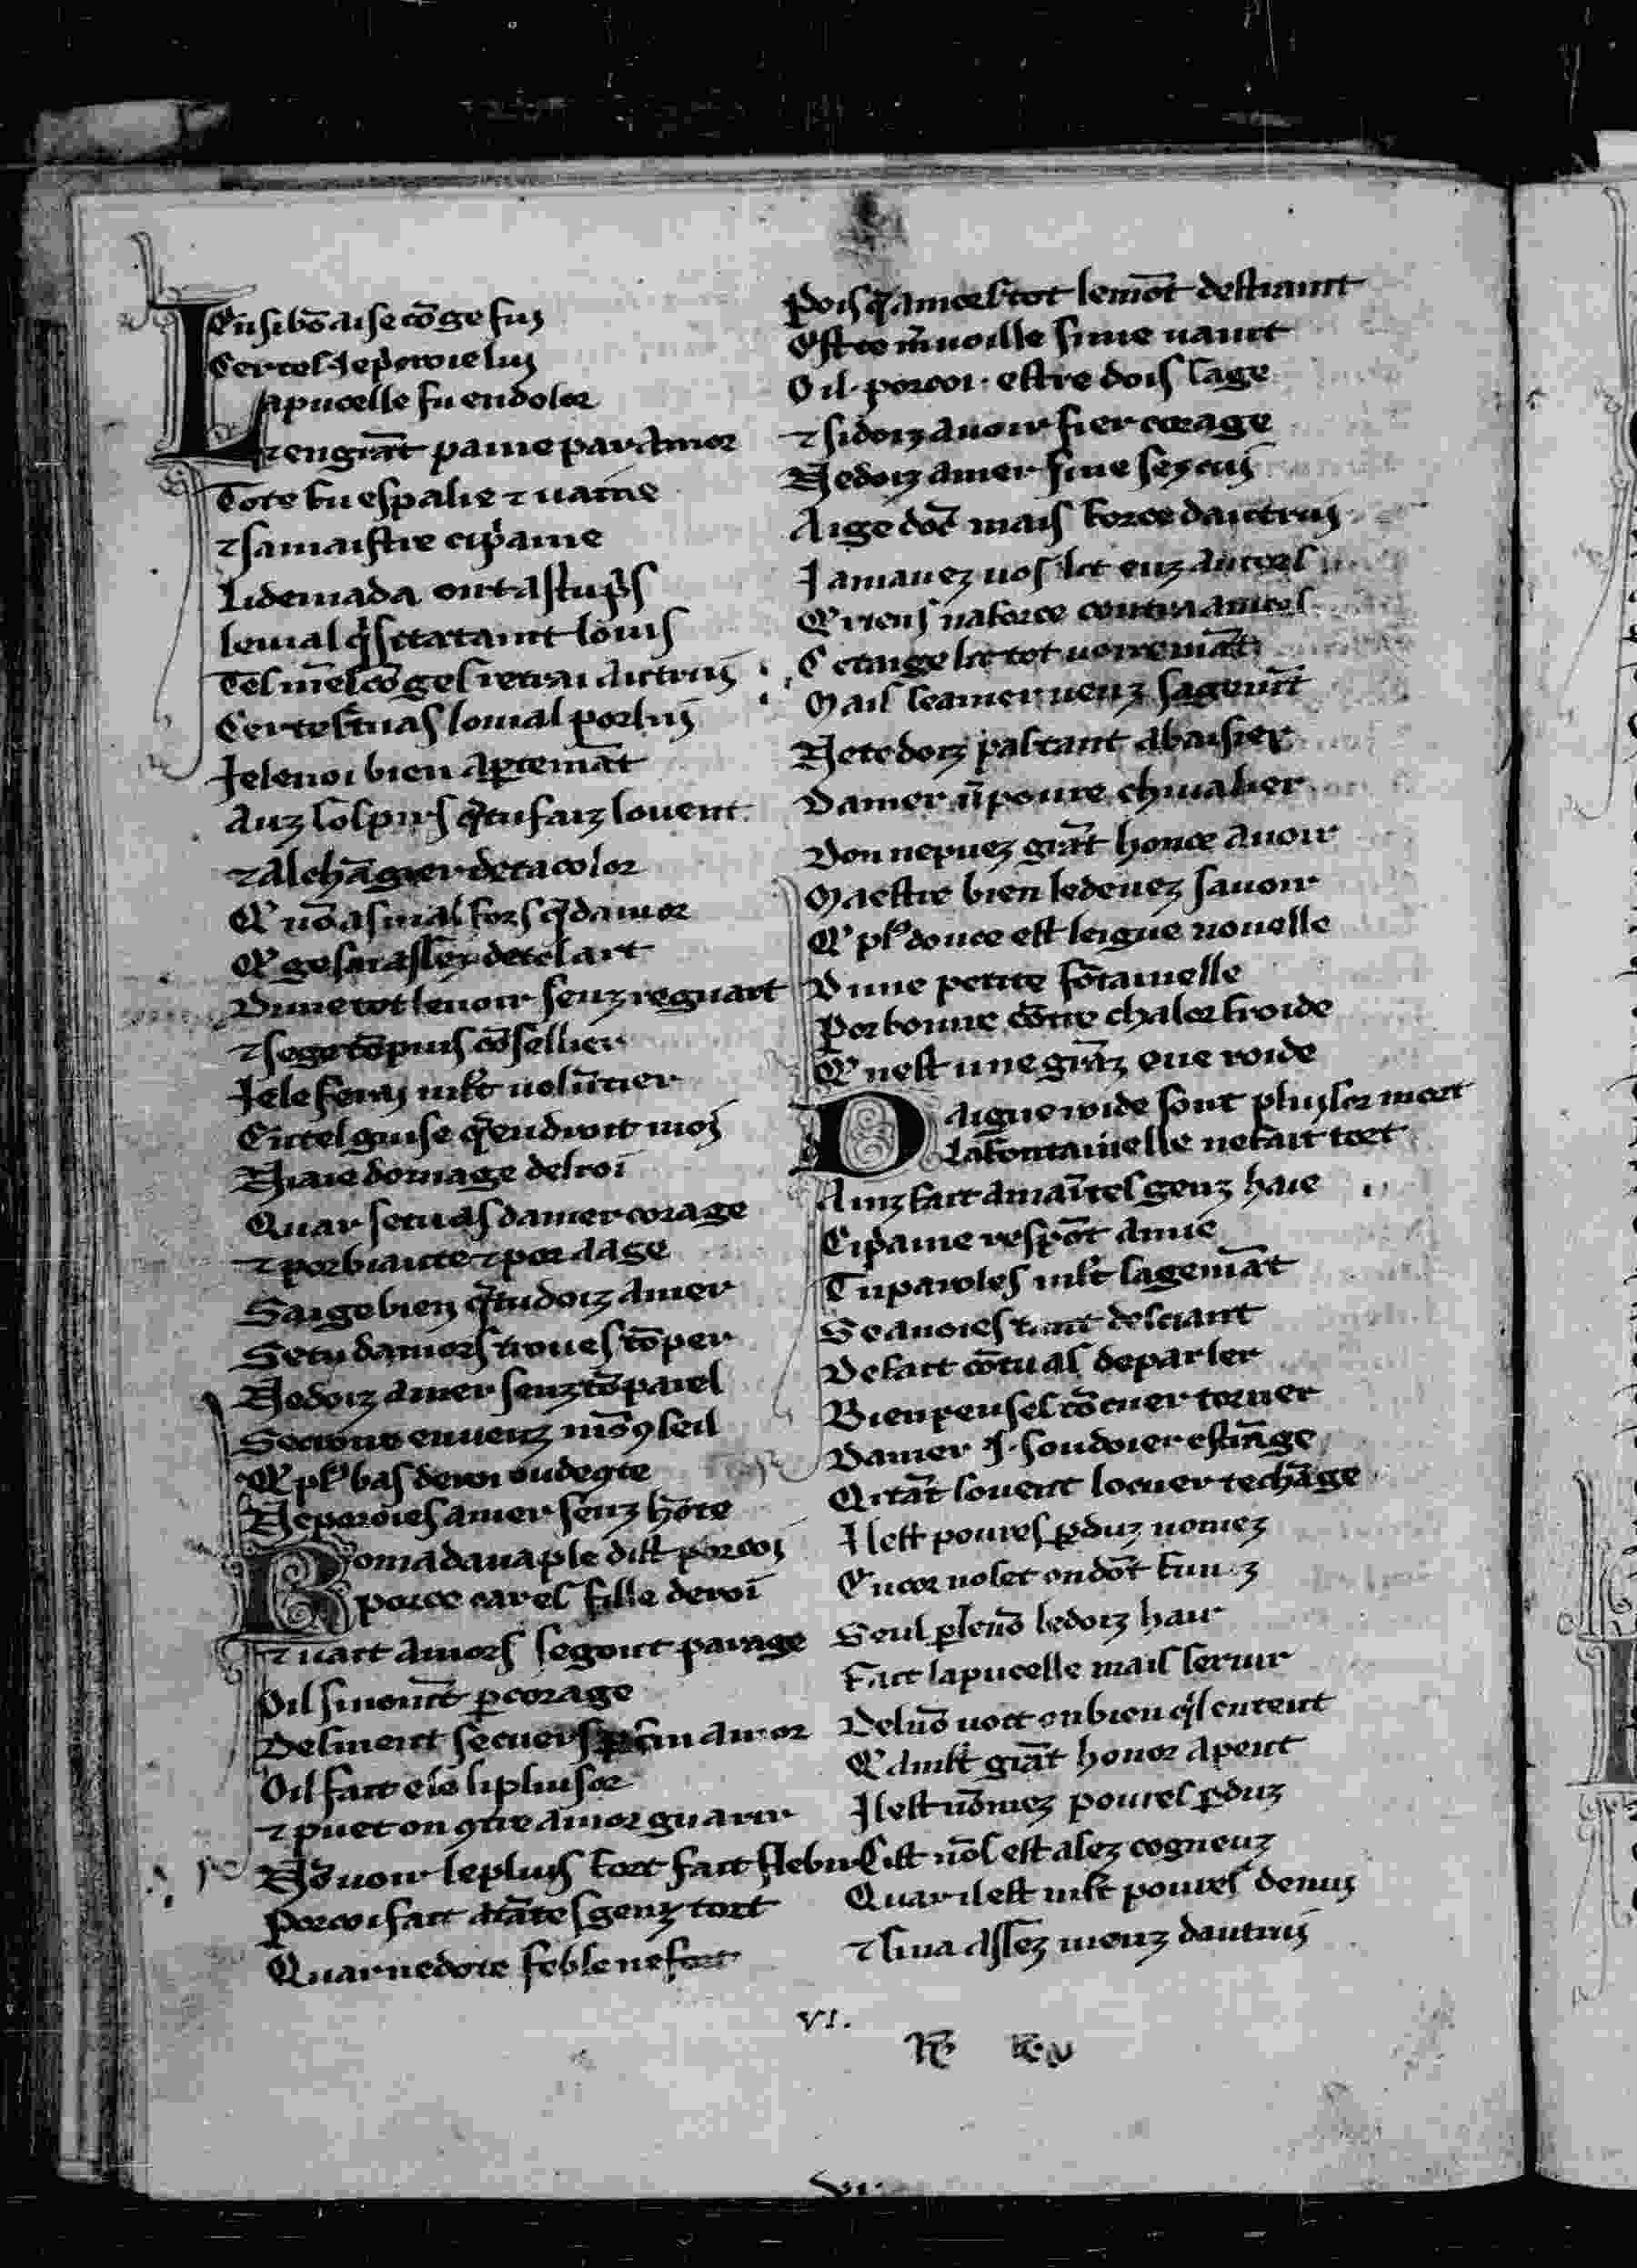 En si bō aise cō ge fuꝫ
Certes ie pͣ uoie luꝫ
La pucelle fu en dolor
⁊ en grāt paine par amor
Tote fu espalie ⁊ uaine
⁊ sa maistre cipͣaine
Li demāda ont as tu pͥs
le mal qͥ si ta taint lo uis
Certes tu as lo mal por lui
Ie lenoi bien aptemāt
Auz sospirs qͤ tu faiz souent
⁊ al chāgier de ta color
Qͤ nō as mal fors qͤ damor
Qͤ ge sai assez de tel art
Di me tot lenoir senz reguart
⁊ se ge tō puis cōsellier
Ie le feray mlt uolūtier
En tel guise qͤ endroit moi
Ni aie domage de toi
Quar se tu as damer corage
⁊ por biaute ⁊ por aage
Sai ge bien qͤ tu doiz amer
Se tu damors troues tō per
Ne doiz amer senz tō pareil
Se croire en uenz mō ꝯseil
Qͤ plͥ bas de roi ou de ꝯte
Ne poroies amer senz hōte
Romadanaple dist por coi
por ce car es fille de roi
⁊ uait amors segont parage
Oil simont̄ ꝑ corage
Oil fait ele li plusor
⁊ puet on ꝯtre amor guarir
Nō uoir le plus fort fait flebir
Por coi fait a tātes genz tort
Quar ne dote feble ne fort
Pois qͤ amors tot le mōt destraint
Est ce mͬuoille si me uaint
Oil. por coi. estre dois sage
⁊ si doiz auoir fier corage
Ne doiz amer si ne sez cui
Ai ge dōc mais force dautrui
Qͤ riens na force contra amors
Mais se amer uenz sagemēt
Ne te doiz pas tant abaisier
Damer ū poure cheualier
Don ne puez grāt honor auoir
Maestre bien le deuez sauoir
Qͤ plͥ douce est leigue nouelle
Dune petite fōtainelle
Por boiure cōtre chalor froide
Qͤ nest une grāz eue roide
Daigue roide sont plusor mort
La fontainelle ne fait tort
Ainz fait a maītes genz haie
Cipͣaine respōt amie
Tu paroles mlt sagemāt
Se auoies tant de sciant
De fait cō tu as de parler
Bien peuses tō cuer torner
Damer .i. soudoier estrāge
Qͥ tāt souent lo cuer te chāge
Il est poures ꝑduz nomez
Seul ꝑ le nō le doiz hair
Fait la pucelle mais seruir
Del nō uoit on bien qͥl entent
Qͤ a mlt grāt honor apent
Il est nōmez poures ꝑduz
Cist nōs est asez cogneuz
Quar il est mlt poures de nuiz
⁊ si na assez menz dautrui
VI.